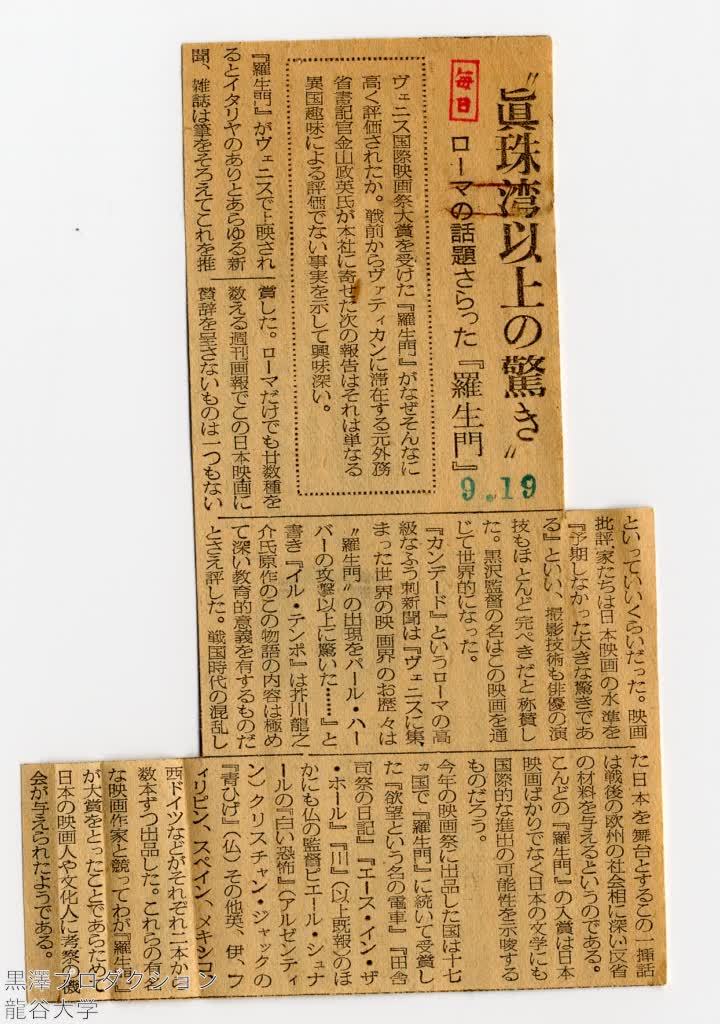 〝眞珠湾以上の驚き〟
毎日
ローマの話題さらった『羅生門』
9.19
ヴェニス国際映画祭大賞を受けた『羅生門』がなぜそんなに
高く評価されたか。戦前からヴァティカンに滞在する元外務
省書記官金山政英氏が本社に寄せた次の報告はそれは単なる
異国趣味による評価でない事実を示して興味深い。
『羅生門』がヴェニスで上映され
るとイタリヤのありとあらゆる新
聞、雑誌は筆をそろえてこれを推
賞した。ローマだけでも廿数種を
数える週刊画報でこの日本映画に
賛辞を呈さないものは一つもない
といっていいくらいだった。映画
批評家たちは日本映画の水準を
『予期しなかった大きな驚きであ
る』といい、撮影技術も俳優の演
技もほとんど完ぺきだと称賛し
た。黒沢監督の名はこの映画を通
じて世界的になった。
『カンデード』というローマの高
級なふう刺新聞は『ヴェニスに集
まった世界の映画界のお歴々は
〝羅生門〟の出現をパール・ハー
バーの攻撃以上に驚いた……』と
書き『イル・テンポ』は芥川龍之
介氏原作のこの物語の内容は極め
て深い教育的意義を有するものだ
とさえ評した。戦国時代の混乱し
た日本を舞台とするこの一挿話
は戦後の欧州の社会相に深い反省
の材料を与えるというのである。
こんどの『羅生門』の入賞は日本
映画ばかりでなく日本の文学にも
国際的な進出の可能性を示唆する
ものだろう。
今年の映画祭に出品した国は十七
ヵ国で『羅生門』に続いて受賞し
た『欲望という名の電車』『田舎
司祭の日記』『エース・イン・ザ
・ホール』『川』(以上既報)のほ
かにも仏の監督ピエール・シュナ
ールの『白い恐怖』(アルゼンティ
ン)クリスチャン・ジャックの
『青ひげ』(仏)その他英、伊、フ
ィリピン、スペイン、メキシコ、
西ドイツなどがそれぞれ二本から
数本ずつ出品した。これらの有名
な映画作家と競ってわが『羅生門』
が大賞をとったことであらためて
日本の映画人や文化人に考察の機
会が与えられたようである。
黒澤プロダクション
龍谷大学